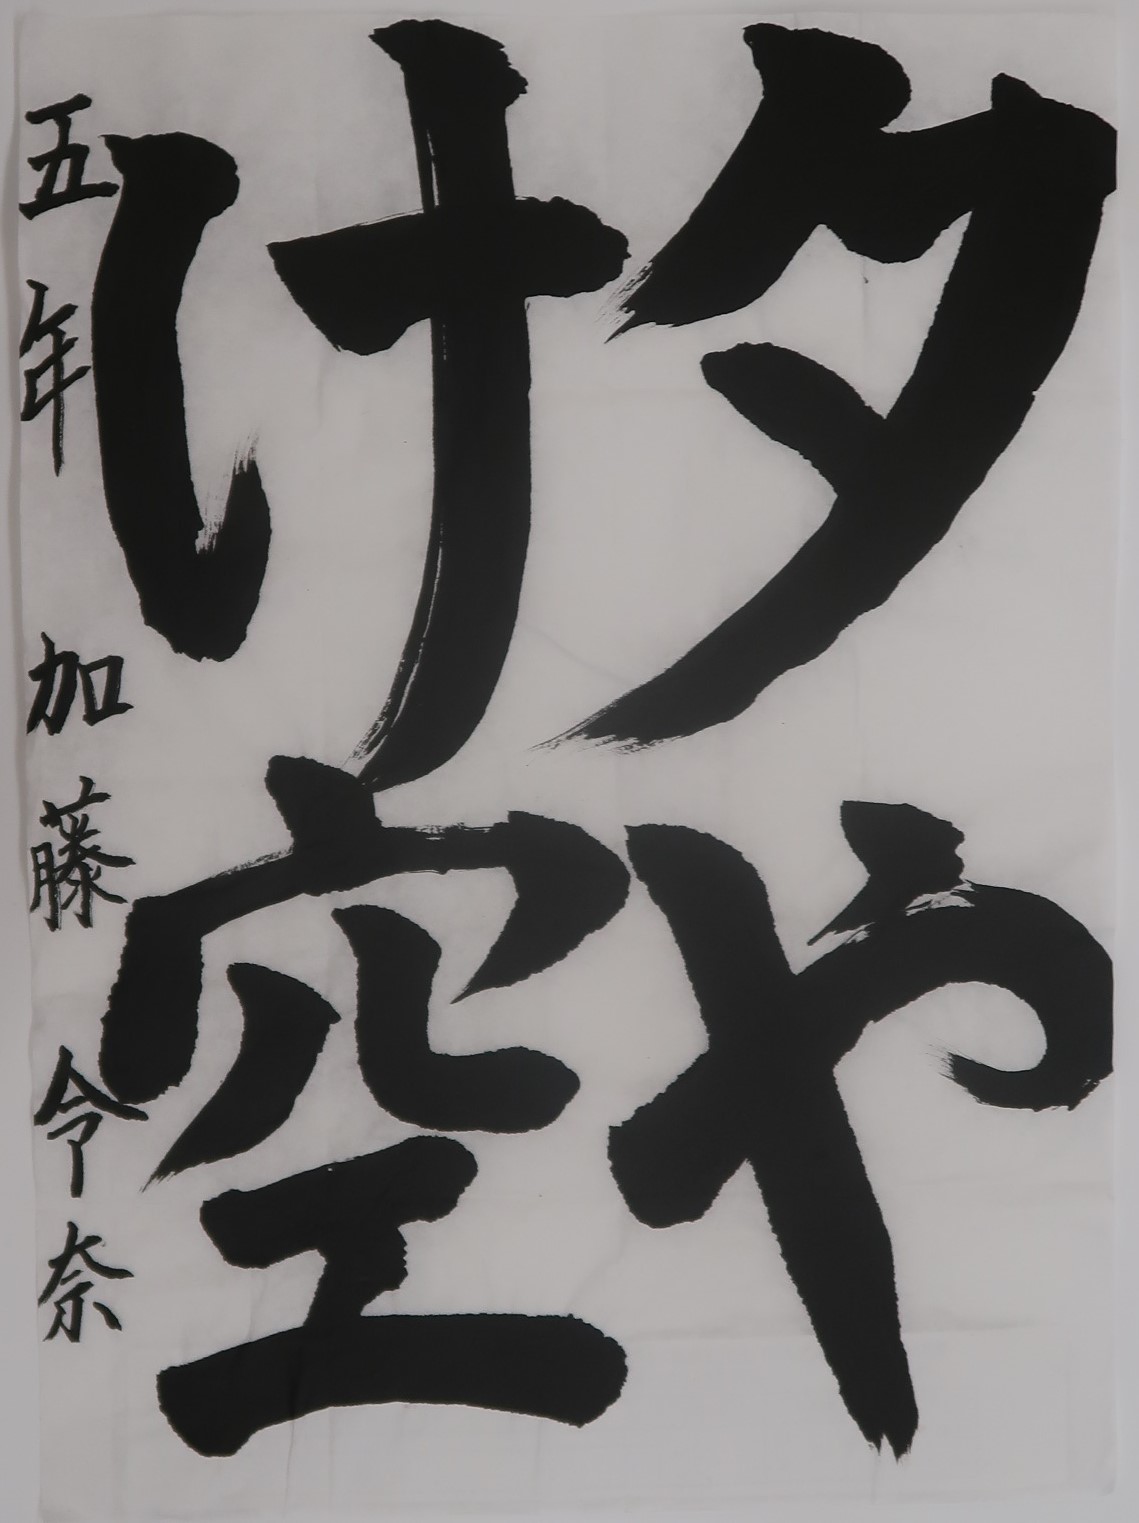 夕や
け空
五年 加藤令奈